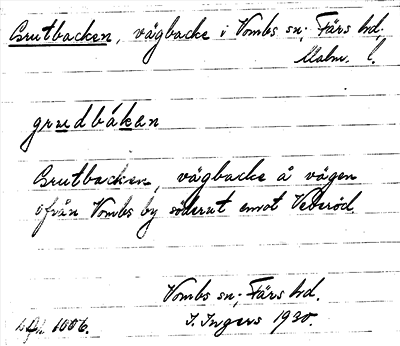 Brutbacken, vägbacke i Vombs sn; Färs hd,
Malm. l.
grudbákan
Brutbacken, vägbacke å vägen
ifrån Vombs by söderut emot Veberöd.
Vombs sn; Färs hd.
1006. I. Ingers 1930.